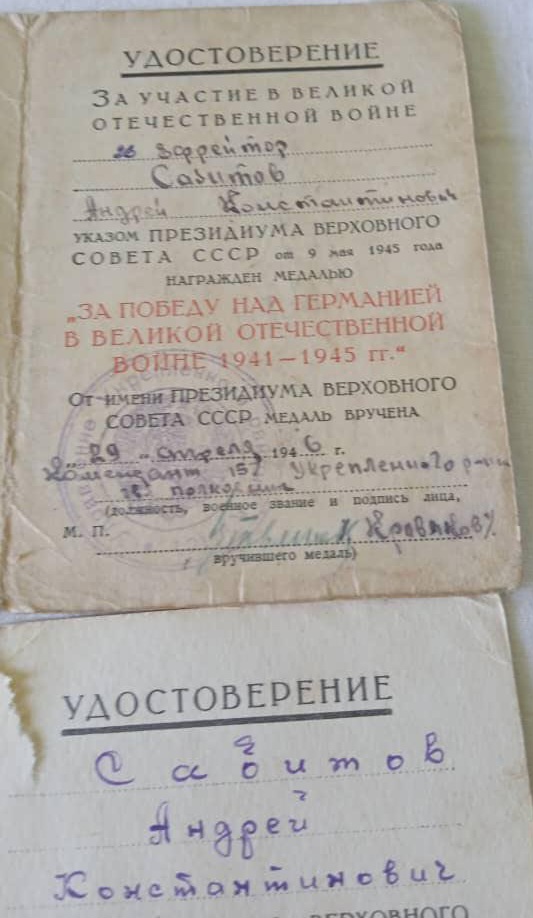 УДОСТОВЕРЕНИЕ
ЗА УЧАСТИЕ В ВЕЛИКОЙ
ОТЕЧЕСТВЕННОЙ ВОЙНЕ
ефрейтор
Сабитов
Андрей Константинович
УКАЗОМ ПРЕЗИДИУМА ВЕРХОВНОГО
СОВЕТА СССР от 9 мая 1945 года
НАГРАЖДЕН МЕДАЛЬЮ
„ЗА ПОБЕДУ НАД ГЕРМАНИЕЙ
В ВЕЛИКОЙ ОТЕЧЕСТВЕННОЙ
ВОЙНЕ 1941—1945 гг.“
От имени ПРЕЗИДИУМА ВЕРХОВНОГО
СОВЕТА СССР МЕДАЛЬ ВРУЧЕНА
„29 „ апреля 1946 г.
Комендант 152 Укрепленного р-на
(должность, военное звание и подпись лица,
М. П.
вручившего медаль)
УДОСТОВЕРЕНИЕ
Сабитов
Андрей
Константинович
ВЕРХОВНОГО